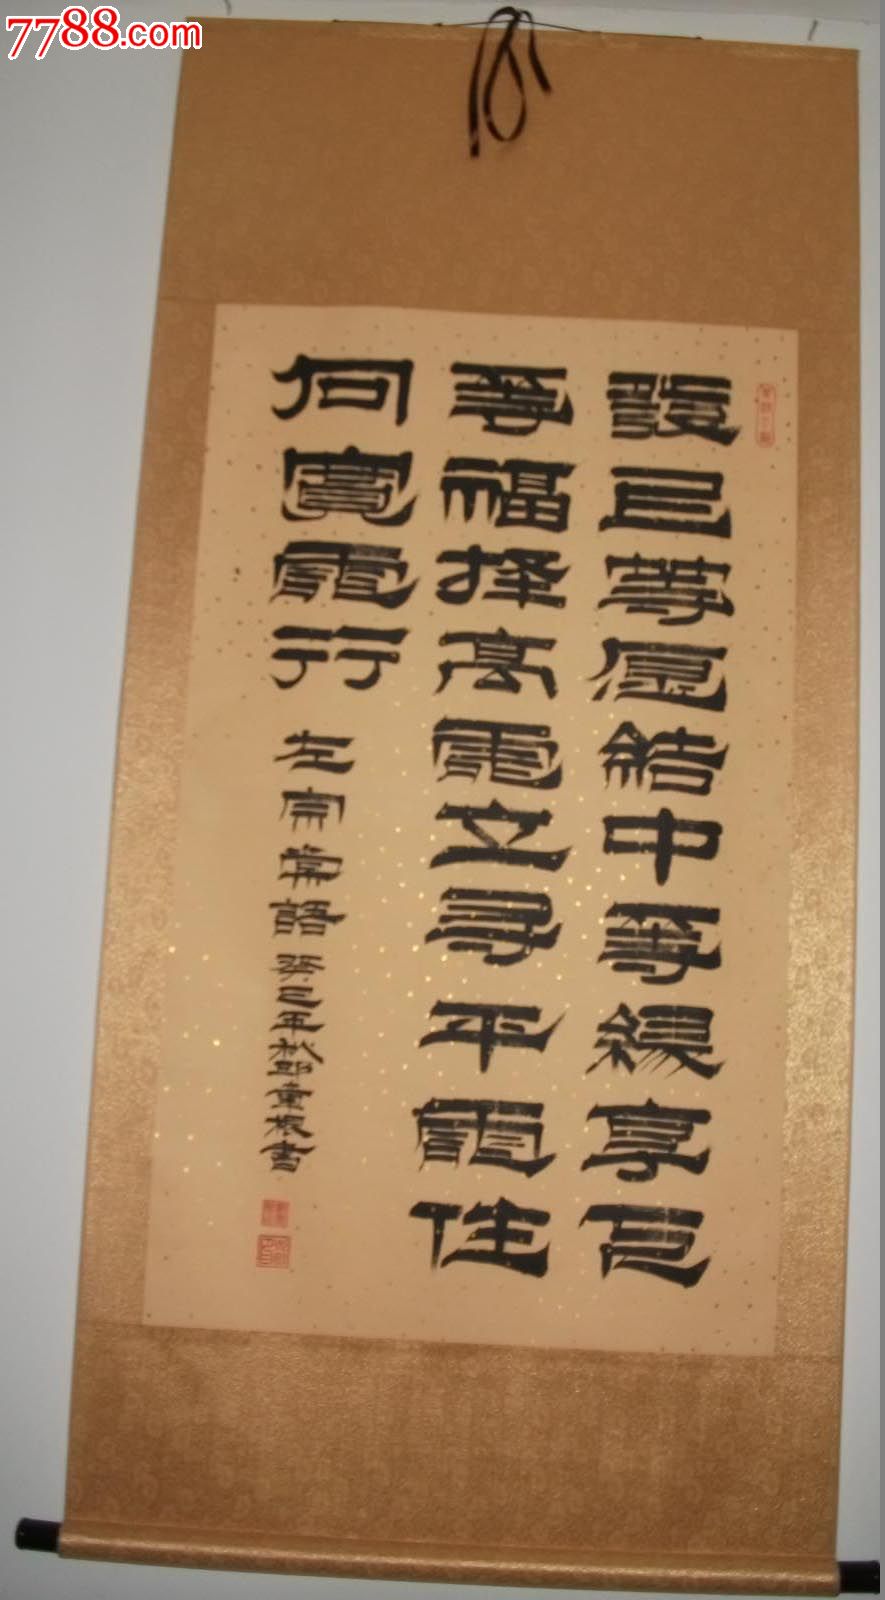 7788.com
發上等愿結中等緣享下
等福择高處立尋平處住
向寬處行
左宗棠語 癸巳年秋 書